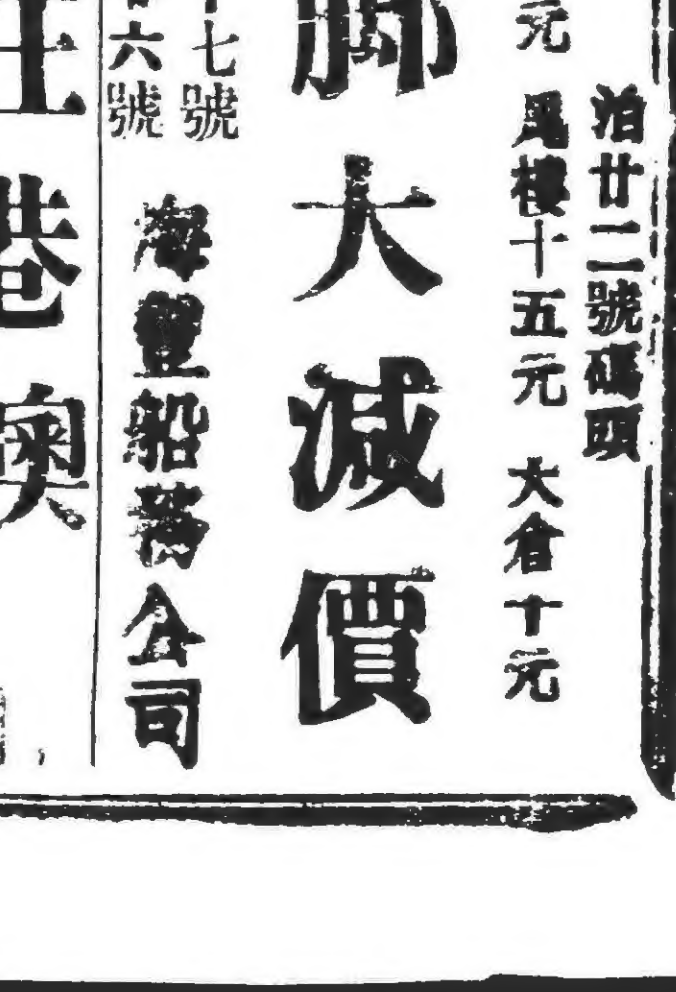 泊廿二號碼頭
元 尾樓十五元 大倉十元
脚大減價
七號
六號
海豐船務公司
往港澳